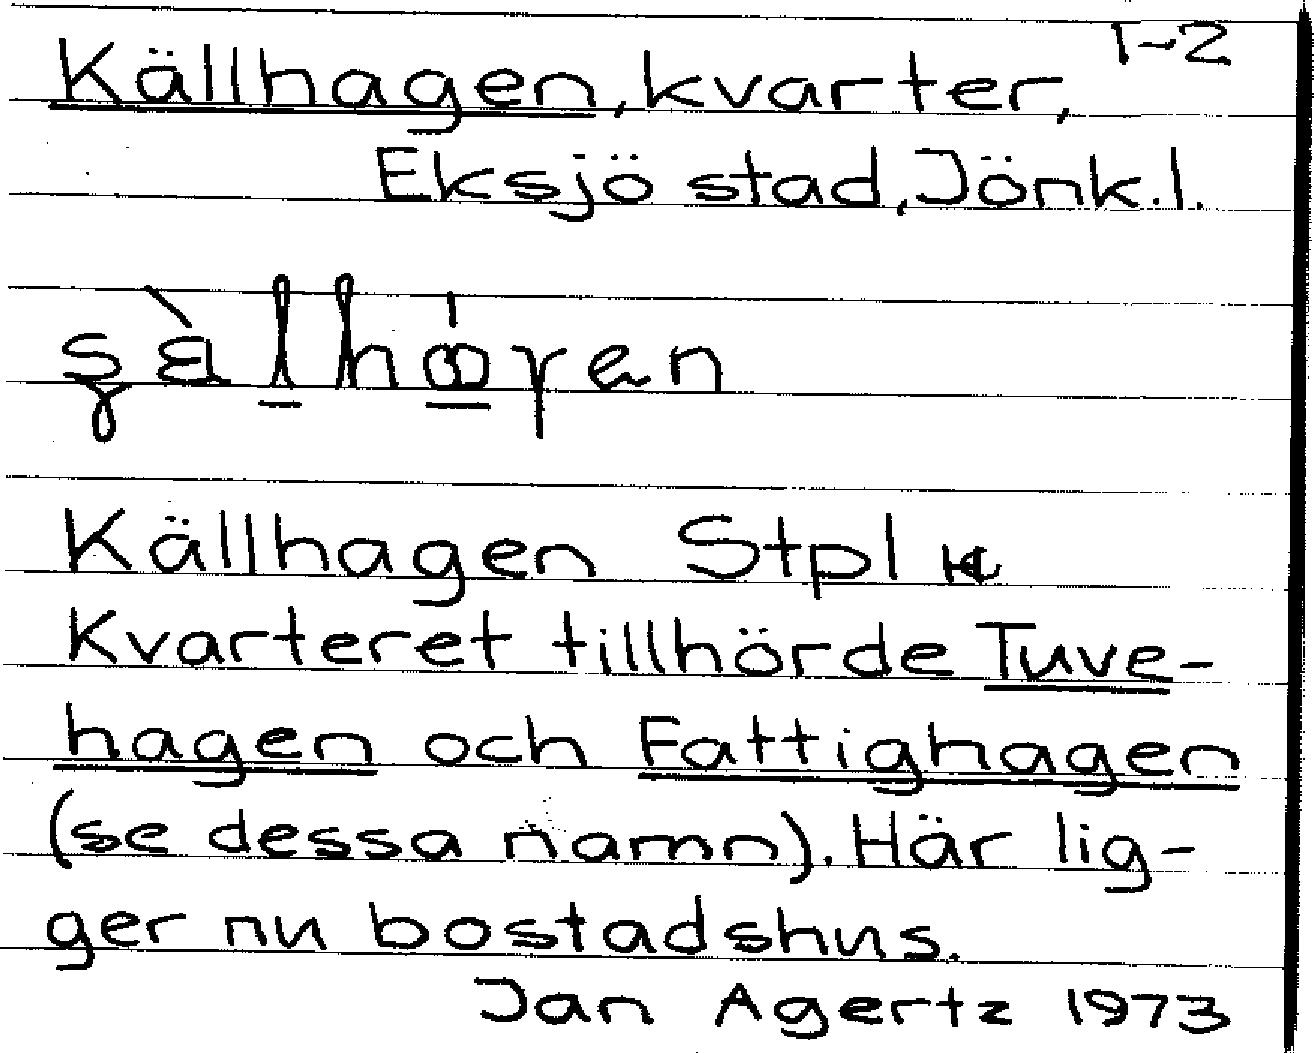 1-2
Källhagen, kvarter,
Eksjö stad, Jönk.l.
Källhagen Stpl
Kvarteret tillhörde Tuve-
hagen och Fattighagen
(se dessa namn). Här lig-
ger nu bostadshus.
Jan Agertz 1973